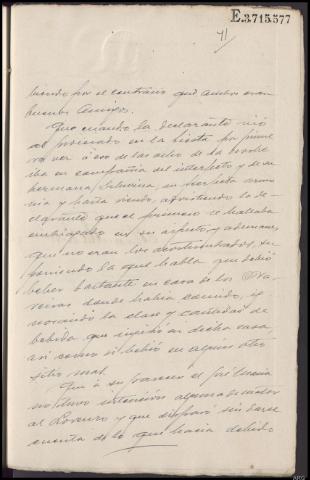 E.3715,577
41
biendo por el contrario que ambos eran
buenos amigos.
Que cuando la declarante vió
al procesado en la fiesta por prime
ra vez á eso de las ocho de la noche
iba en compañía del interfecto y de su
hermana Silverina, en perfecta armo
nía y hasta riendo, advirtiendo la de-
clarante que el primero se hallaba
embriagado en su aspecto y ademanes,
que no eran los acostumbrados, su
poniendo la que habla que debió
beber bastante en casa de los
donde había comido, ig
norando la clase y cantidad de
bebida que ingirió en dicha casa,
así como si bebió en algun otro
sitio mas.
Que á su parecer el José María
no tuvo intención alguna de matar
al Lorenzo y que disparó sin darse
cuenta de lo que hacia debido